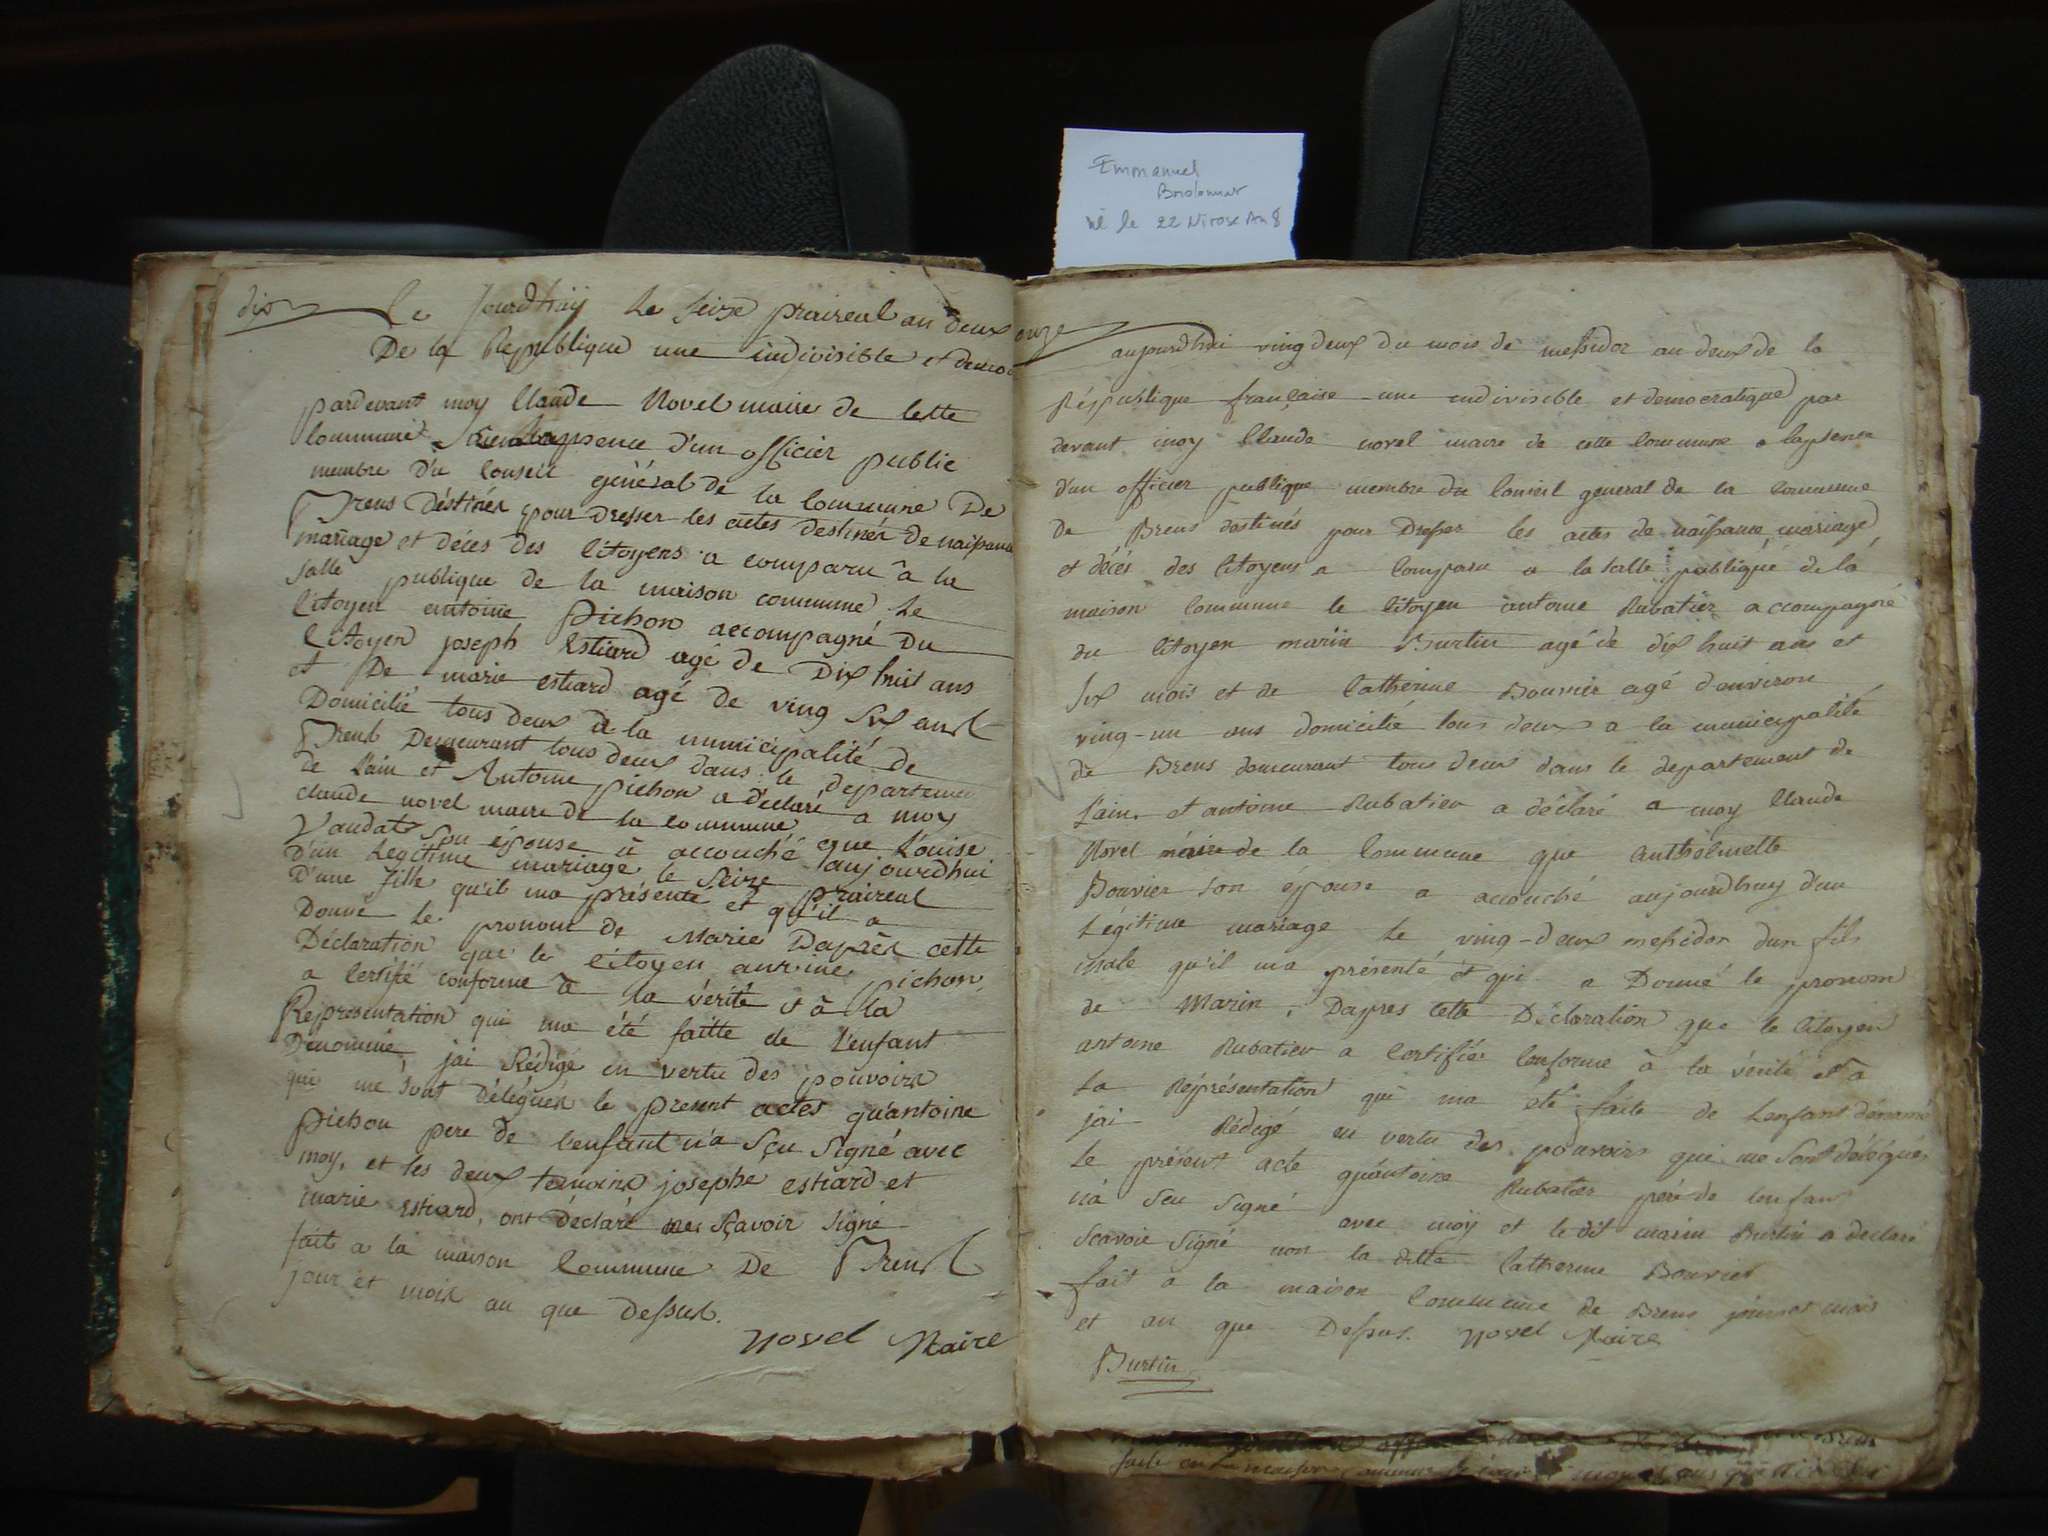 Emmanuel
né le 22 Nivose An 8
dix
Le Jourdhuy le seize praireal an deux
De la Republique une indivisible et democ
pardevant moy Claude Novel maire de cette
commune presence d'un officier public
membre Du Conseil général de la commune De
Brens déstinés pour Dresser les actes destinés de naissance
mariage et décès des Citoyens a comparu à la
salle publique de la maison commune Le
Citoyen antoine Pichon accompagné Du
Citoyen joseph Estiard agé de Dix huit ans
et De marie estiard agé de ving six ans
Domicilié tous deux à la municipalité de
Brens Demeurant tous deux dans le departemen
de L'ain et Antoine pichon a déclaré a moy
claude novel maire de la commune que Louise
Vaudat son épouse à accouché aujourdhui
D'un Legitime mariage le seize praireal
D'une fille qu'il ma présenté et qu'il a
Donné le pronom de Marie Daprès cette
Déclaration que le citoyen antoine pichon
a Certifié conforme à la vérité et à la
Représentation qui ma été faitte de L'enfant
Dénommé jai Rédigé en vertu des pouvoirs
qui me sont Délégués le present actes qu'antoine
pichon pere de l'enfant n'a sçu signé avec
moy, et les deux temoins josephe estiard et
marie estiard, ont déclaré ne sçavoir signé
fait a la maison Commune De Brens
jour et mois an que Dessus.
Novel Maire
onze
aujourdhui vingdeux du mois de messidor an deux de la
République française une indivisible et democratique par
devant moy Claude novel maire de cette Commune a lapsence
d'un officier publique membre du Conseil general de la commune
de Brens destinés pour Dresser les actes de naissance, mariage
et décés des Citoyens a Comparu a la salle publique de la
maison Commune le Citoyen antoine Rubatier accompagné
du Citoyen marin Burtin agé de dix huit ans et
six mois et de Catherine Bouvier agé d'environ
ving-un ans domicilié tous deux a la municipalité
de Brens demeurant tous deux dans le departement de
L'ain. et antoine Rubatier a déclaré a moy Claude
Novel maire de la Commune que Anthelmette
Bouvier son épouse a accouché aujourdhuy d'un
Légitime mariage le ving-deux messidor d'un fils
male qu'il ma présenté et qui a Donné le pronom
de Marin, Dapres cette Déclaration que le Citoyen
antoine Rubatier a Certifiée Conforme à la vérité et à
La Représentation qui ma été faite de L'enfant dénomé
jai Rédigé en vertu des pouvoirs qui me sont délégués
Le présent acte qu'antoine Rubatier pere de lenfan
n'a scu signé avec moy et le dit marin Burtin a declaré
scavoir signé non la ditte Catherine Bouvier
fait a la maison Commune de Brens jour et mois
et an que Dessus. Novel Maire
Burtin